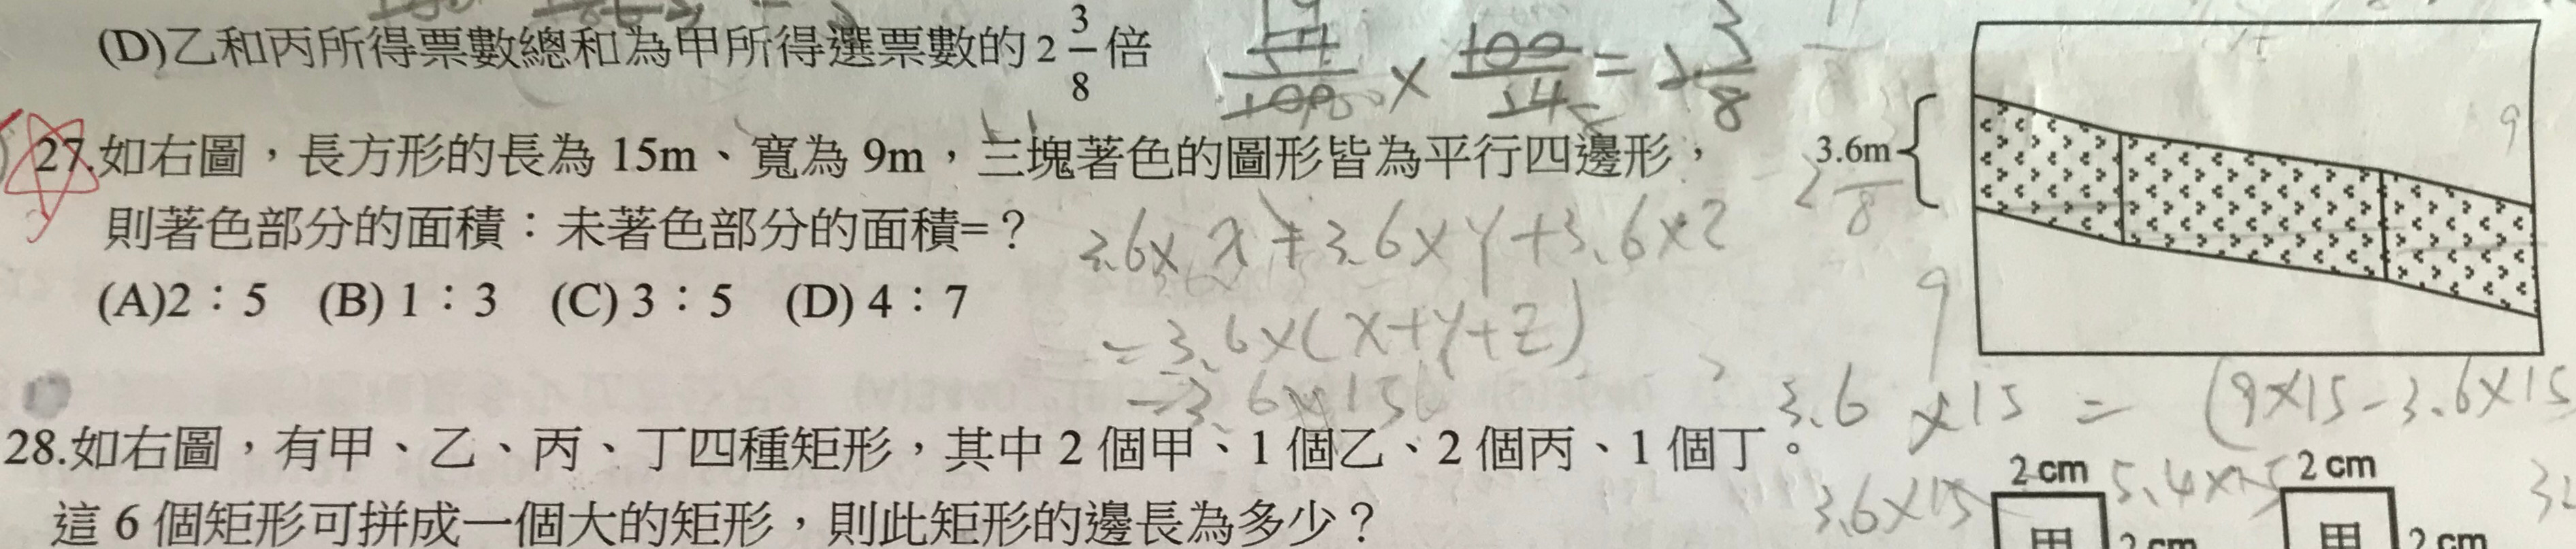 (D)乙和丙所得票數總和為甲所得選票數的 2 3/8 倍
× 100 = 2 3/8
27.如右圖，長方形的長為 15m、寬為 9m，三塊著色的圖形皆為平行四邊形，
則著色部分的面積：未著色部分的面積=？
(A)2：5 (B) 1：3 (C) 3：5 (D) 4：7
3.6m
9
3.6×x+3.6×y+3.6×z
=3.6×(x+y+z)
=3.6×15
9
3.6×15 = (9×15-3.6×15
3.6×15
5.4×15
28.如右圖，有甲、乙、丙、丁四種矩形，其中 2 個甲、1 個乙、2 個丙、1 個丁。
這 6 個矩形可拼成一個大的矩形，則此矩形的邊長為多少？
2 cm
2 cm
甲
2 cm
甲
2 cm